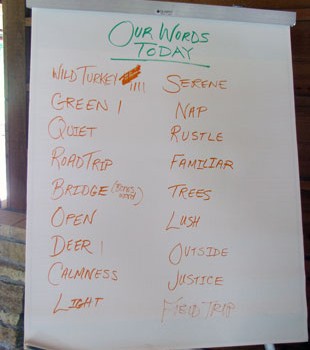 OUR WORDS
TODAY
WILD TURKEY
GREEN
QUIET
ROADTRIP
BRIDGE
OPEN
DEER
CALMNESS
LIGHT
SERENE
NAP
RUSTLE
FAMILIAR
TREES
LUSH
OUTSIDE
JUSTICE
FIELD TRIP